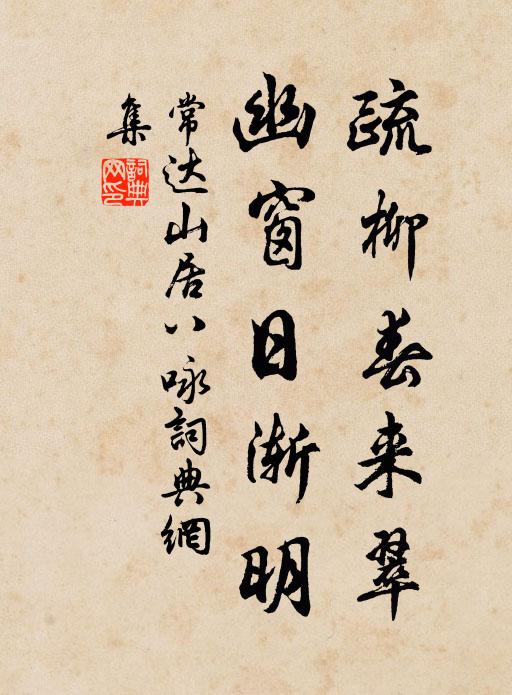 疏柳春来翠
幽窗日渐明
常达山居八咏詞典網
集
詞典
网印